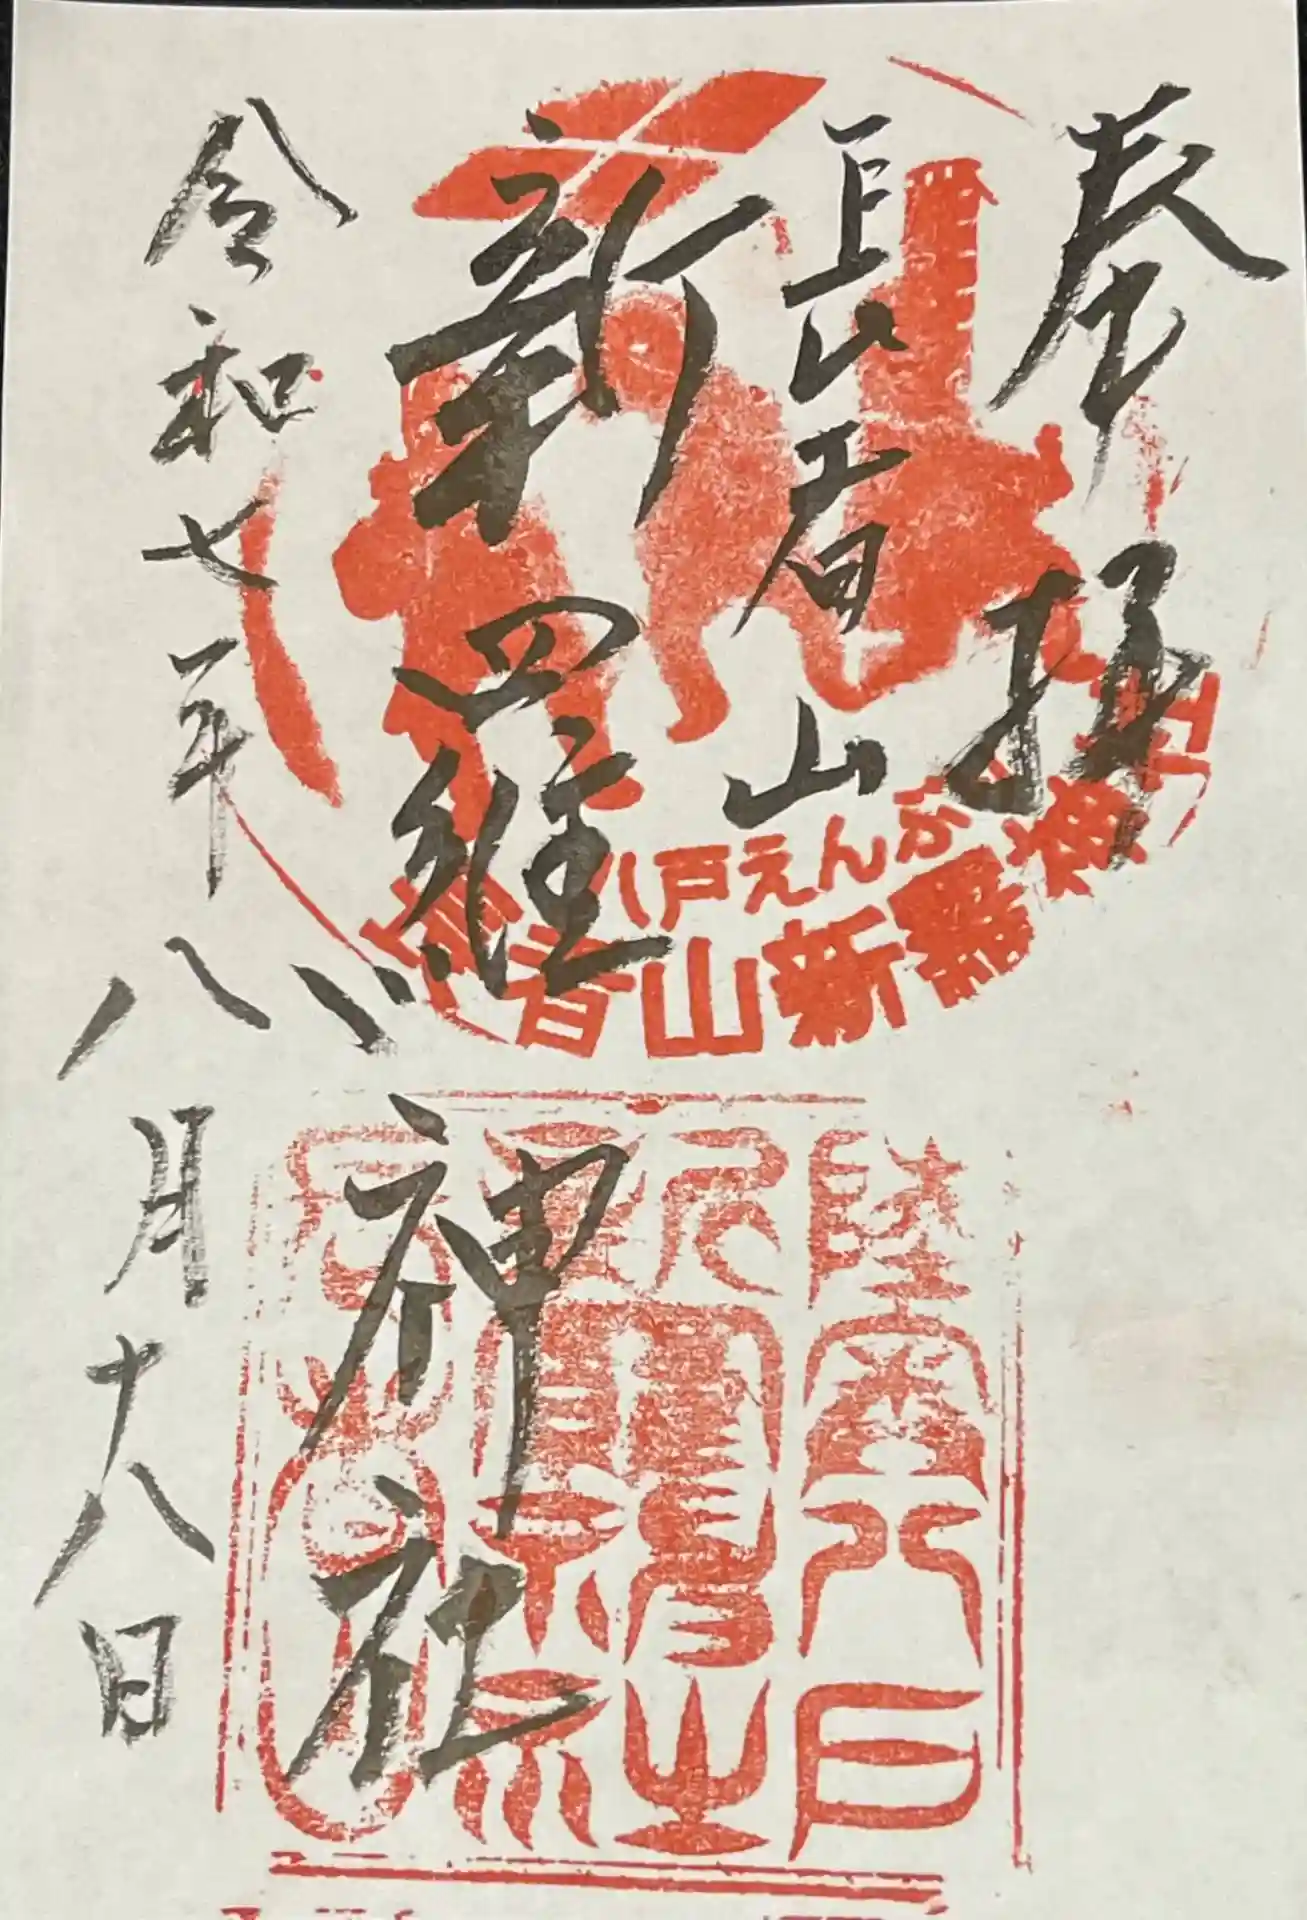 奉拝
長者山
新羅神社
令和七年八月十八日
八戸えんぶり
長者山新羅神社
陸奥八戸